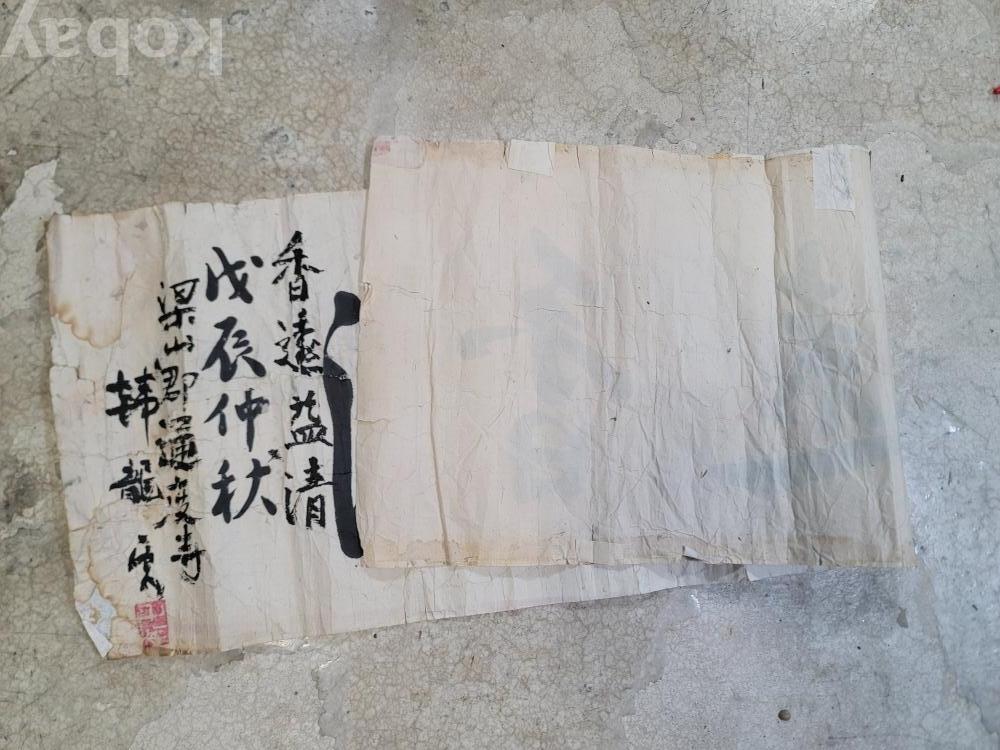 香遠益清
戊辰仲秋
梁山郡通度寺
韓龍雲
kobay